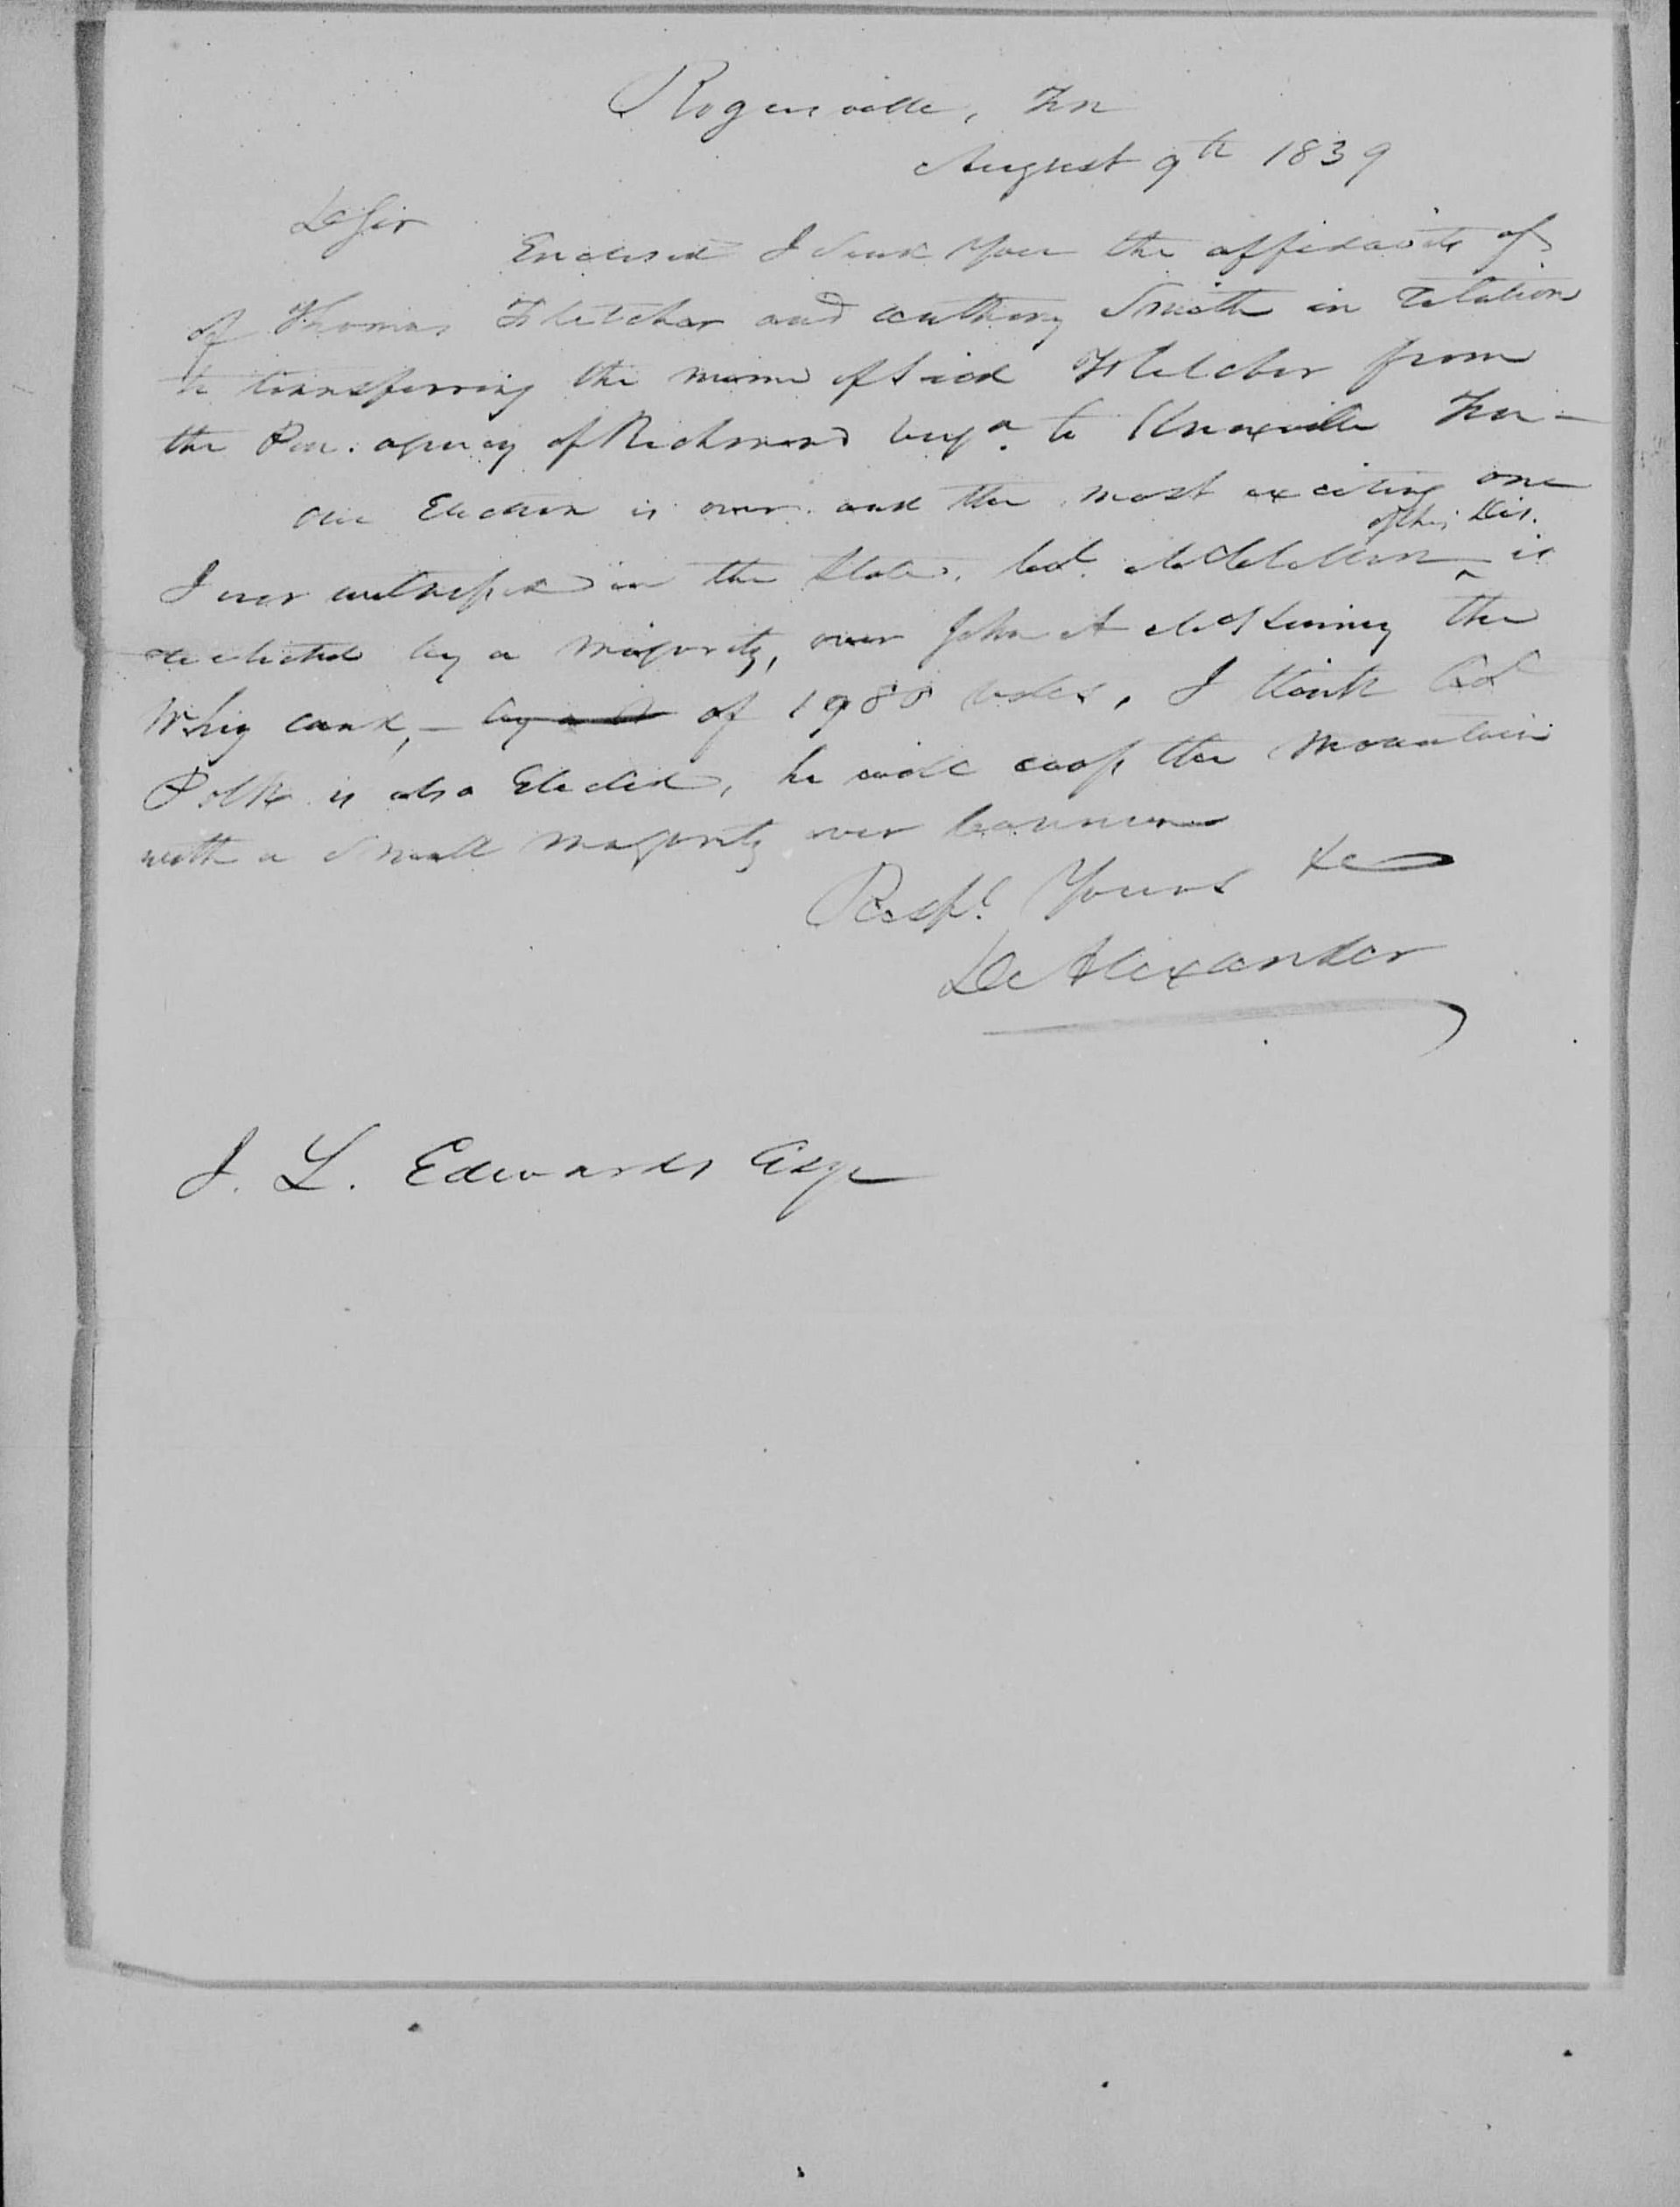 Rogersville, Ten
August 9th 1839
Dr Sir
Enclosed I send you the affidavits of
of Thomas Fletcher and Anthony Smith in relation
to transferring the name of said Fletcher from
the Pen. agency of Richmond Virga. to Knoxville Ten -
our Election is over and the most exciting one
I ever witnessed in the State. Col. McClellan ^ of this Dis. is
reelected by a majority, over John A McKinney the
Whig cand, - by a of 1980 votes, I think Col
Polk is also Elected, he will cross the Mountain
with a small majority over Cannon
Respt. Yours &c
De Alexander
J. L. Edwards Esqr